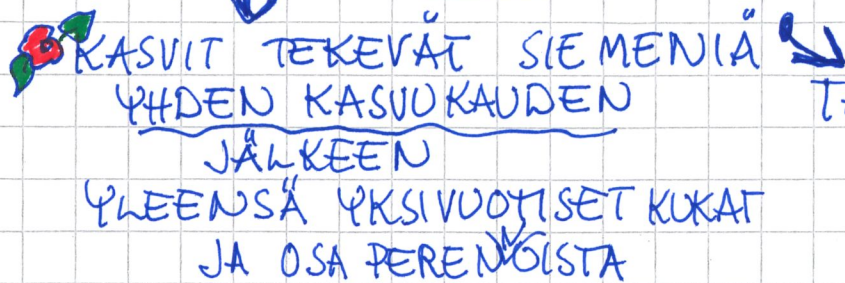 KASVIT TEKEVÄT SIEMENIÄ
YHDEN KASVUKAUDEN
JÄLKEEN
YLEENSÄ YKSIVUOTISET KUKAT
JA OSA PERENNOISTA